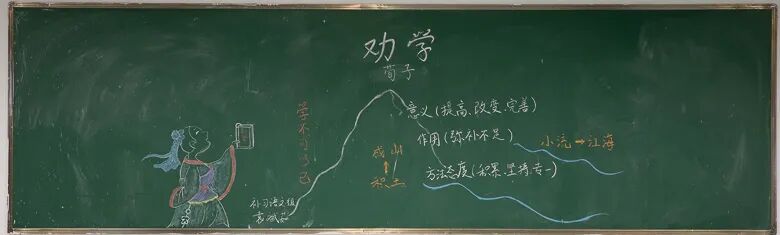 劝学
荀子
学不可以已
意义(提高、改变、完善)
作用(弥补不足)
小流→江海
成山
↑
积土
方法态度(积累、坚持、专一)
补习语文组